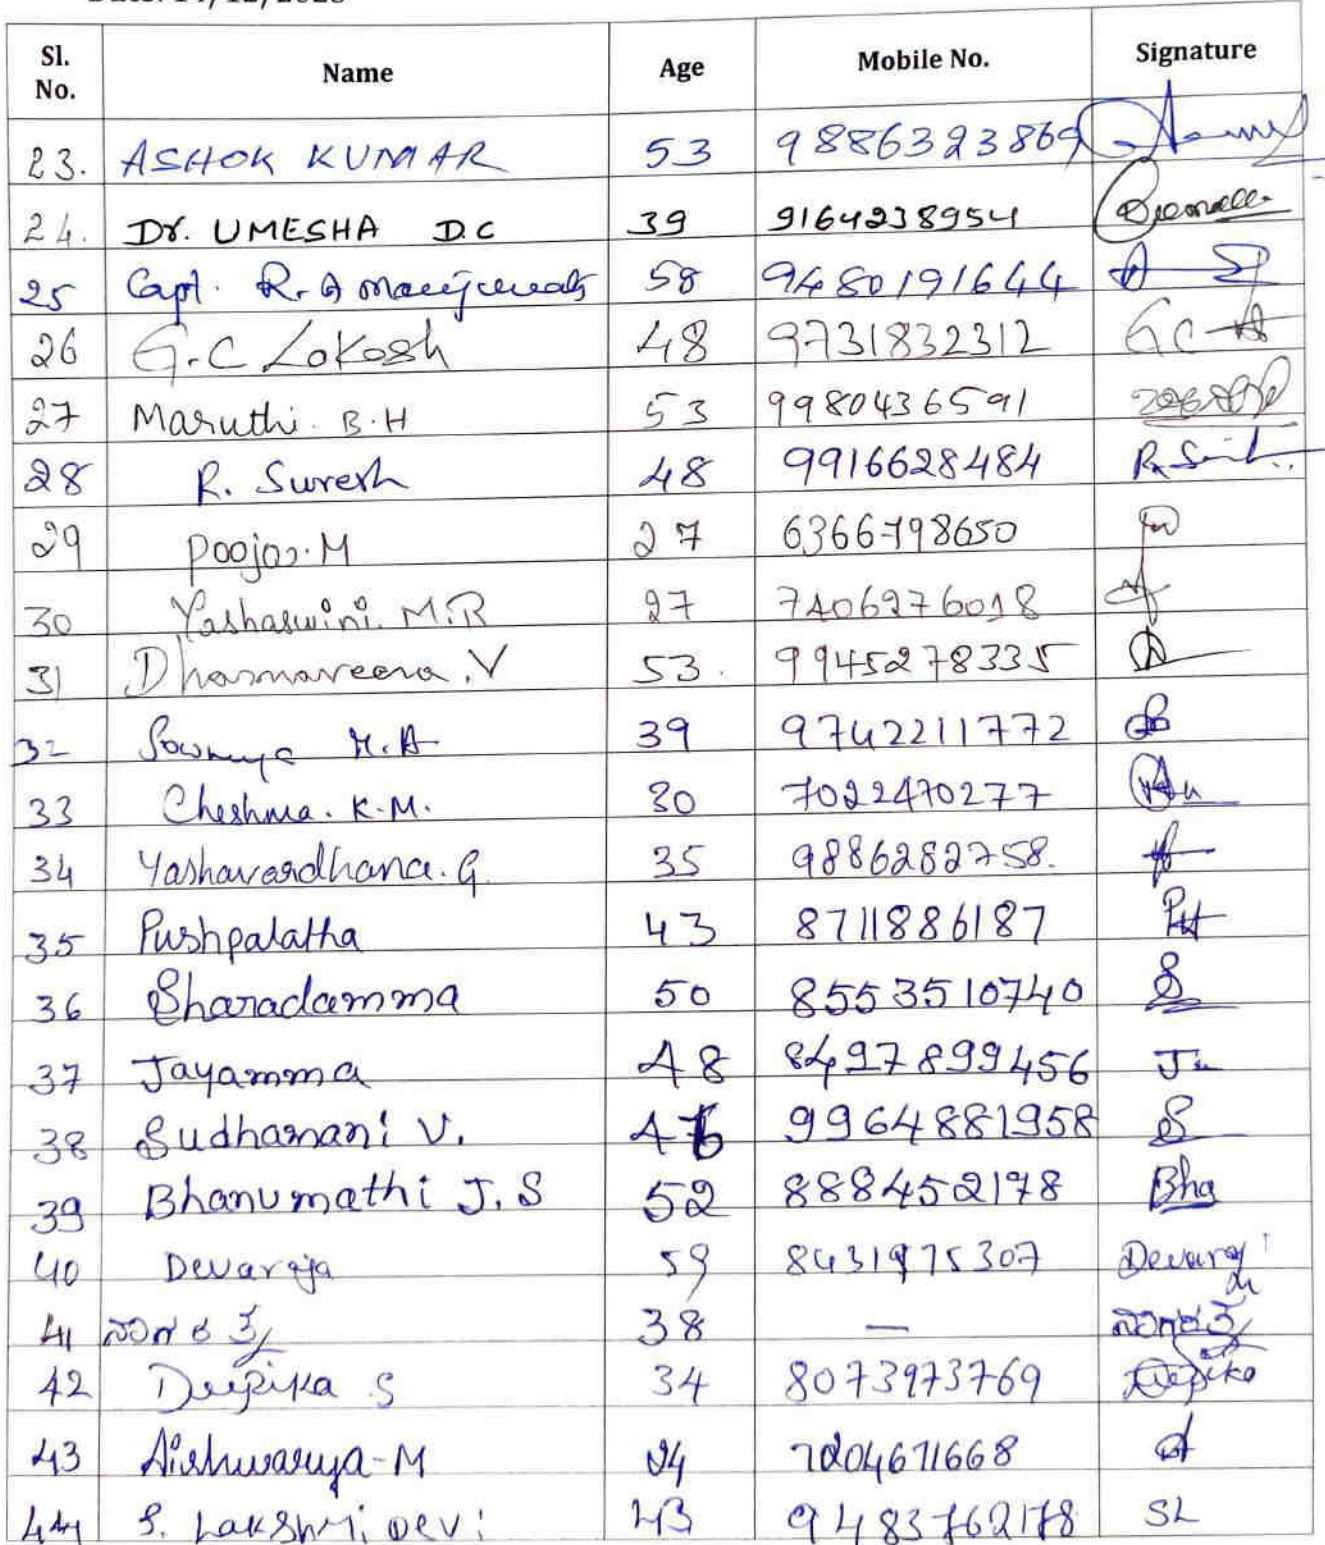 Sl. No. Name Age Mobile No. Signature
23. ASHOK KUMAR 53 9886323869
24. Dr. UMESHA D.C 39 9164238954
25 Capt. R. A 58 9480191644
26 G.C Lokesh 48 9731832312 GC
27 Maruthi. B.H 53 9980436591
28 R. Suresh 48 9916628484
29 Pooja. M 27 6366798650
30 Yashaswini. M.R 27 7406276018
31 Dharmaveera. V 53. 9945278335
32 Sowmya H.A 39 9742211772
33 Cheshma. K.M. 30 7022470277
34 Yashavardhana. G 35 9886282758.
35 Pushpalatha 43 8711886187
36 Sharadamma 50 8553510740 S
37 Jayamma 48 8497899456
38 Sudhamani V. 9964881958 S
39 Bhanumathi J.S 52 888452178 Bha
40 Devaraja 59 8431975307
41 38 —
42 Deepika S 34 8073973769 Deepika
43 Aishwarya-M 24 7204671668
44 S. Lakshmi Devi 43 9483762178 SL